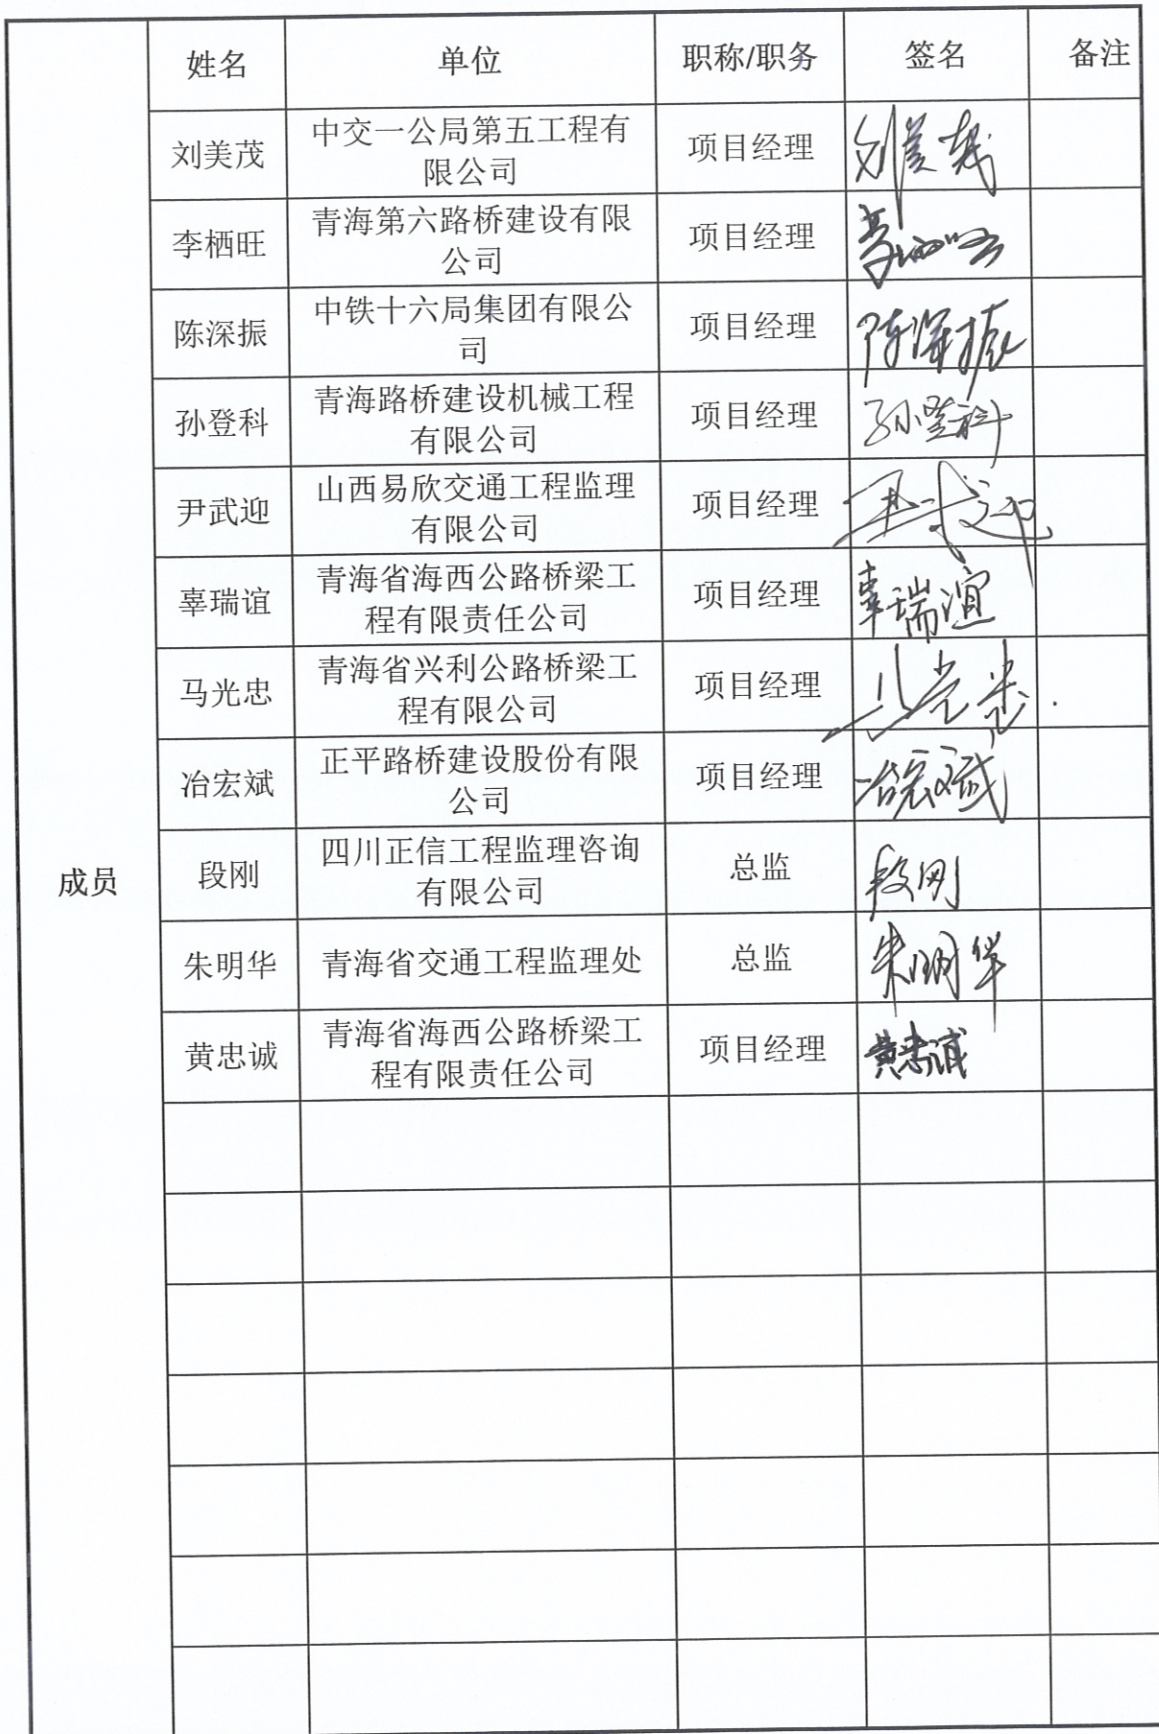 姓名 单位 职称/职务 签名 备注
刘美茂 中交一公局第五工程有限公司 项目经理 刘美茂
李栖旺 青海第六路桥建设有限公司 项目经理 李栖旺
陈深振 中铁十六局集团有限公司 项目经理 陈深振
孙登科 青海路桥建设机械工程有限公司 项目经理 孙登科
尹武迎 山西易欣交通工程监理有限公司 项目经理 尹武迎
辜瑞谊 青海省海西公路桥梁工程有限责任公司 项目经理 辜瑞谊
马光忠 青海省兴利公路桥梁工程有限公司 项目经理 马光忠
冶宏斌 正平路桥建设股份有限公司 项目经理 冶宏斌
成员 段刚 四川正信工程监理咨询有限公司 总监 段刚
朱明华 青海省交通工程监理处 总监 朱明华
黄忠诚 青海省海西公路桥梁工程有限责任公司 项目经理 黄忠诚